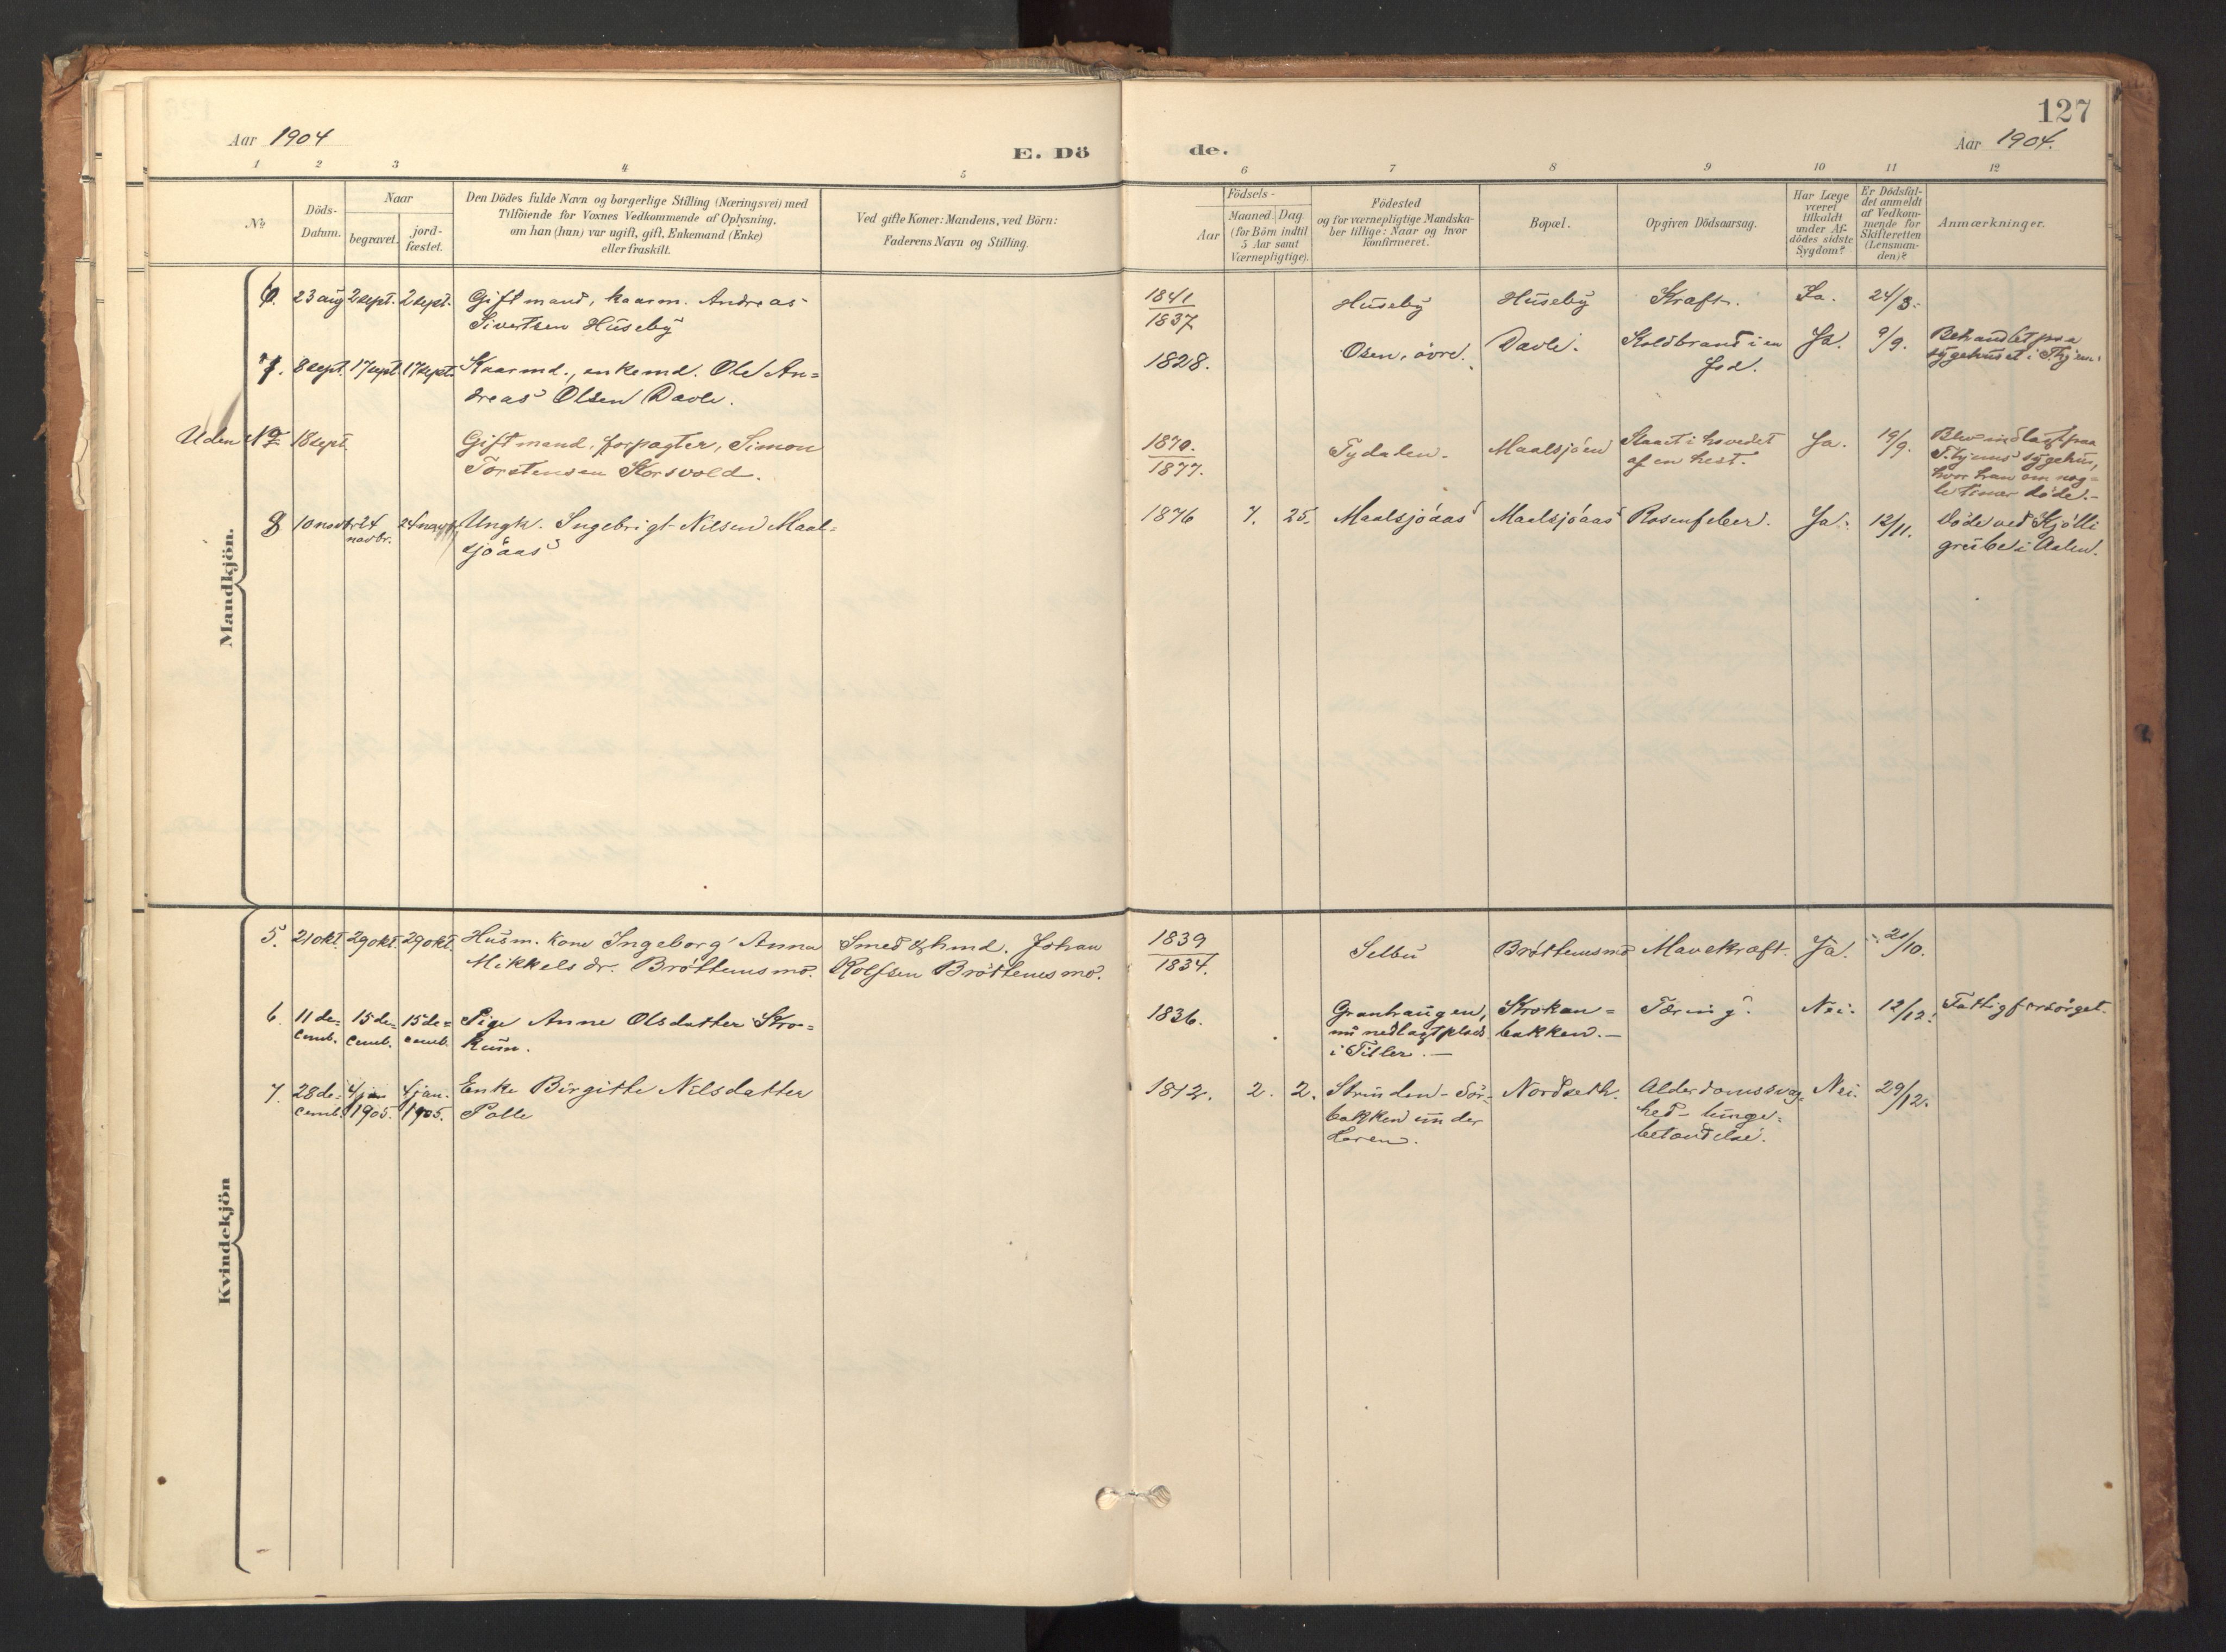 127
Aar 1904
E. Dö
de.
Aar 1904.
1 2 3 4 5 6 7 8 9 10 11 12
No.
Döds-
Datum.
Naar
begravet.
jord-
fæstet.
Den Dödes fulde Navn og borgerlige Stilling (Næringsvei) med
Tilföiende for Voxnes Vedkommende af Oplysning,
om han (hun) var ugift, gift, Enkemand (Enke)
eller fraskilt.
Ved gifte Koner: Mandens, ved Börn:
Faderens Navn og Stilling.
Födsels-
Aar
Maaned. Dag.
(for Börn indtil
5 Aar samt
Værnepligtige).
Födested
og for værnepligtige Mandska-
ber tillige: Naar og hvor
konfirmeret.
Bopæl.
Opgiven Dödsaarsag.
Har Læge
været
tilkaldt
under Af-
dödes sidste
Sygdom?
Er Dödsfal-
det anmeldt
af Vedkom-
mende for
Skifteretten
(Lensman-
den)?
Anmærkninger.
Mandkjön.
6. 23 aug 2 sept. 2 sept. Gift mand, kaarm. Andreas
Sivertsen Huseby
1841
1837
Huseby
Huseby
Kræft.
Ja.
24/8.
7. 8 sept. 17 sept. 17 sept. Kaarmd., enkemd. Ole An=
dreas Olsen Davle.
1828.
Osen, övre.
Davle.
Koldbrand i en
fod.
Ja.
9/9.
Behandlet paa
sygehuset i Thjem.
Uden No. 18 sept. Gift mand, forpagter, Simon
Torstensen Korsvold.
1870.
1877.
Tydalen.
Maalsjöen
Slaaet i hovedet
af en hest.
Ja.
19/9.
Blev indlagt paa
T.hjems sygehus,
hvor han om nog=
le timer döde.-
8 10 novbr 24
novbr.
24 novbr. Ungk. Ingebrigt Nilsen Maal-
sjöaas
1876 7. 25.
Maalsjöaas
Maalsjöaas
Rosenfeber.
Ja.
12/11.
Döde ved Kjölli
grube i Aalen.
Kvindekjön
5. 21 okt. 29 okt. 29 okt. Husm. kone Ingeborg Anna
Mikkelsdr. Bröttemsmo.
Smed & hmd. Johan
Rolfsen Bröttemsmo.
1839
1834.
Selbu
Bröttemsmo
Mavekræft.
Ja.
21/10.
6. 11 de=
cemb.
15 de=
cemb.
15 de=
cemb.
Pige Anne Olsdatter Kro=
kum.
1836.
Granhaugen,
nu nedlagt plads
i Tiller.-
Krokan=
bakken.-
Tæring.
Nei.
12/12.
Fattigforsörget.
7. 28 de=
cemb.
4 jan
1905.
4 jan.
1905.
Enke Birgitte Nilsdatter
Palle
1812. 2. 2.
Strinden - Sör-
bakken under
Leren.
Nordseth.
Alderdomssvag-
hed - lunge=
betændelse.
Nei.
29/12.